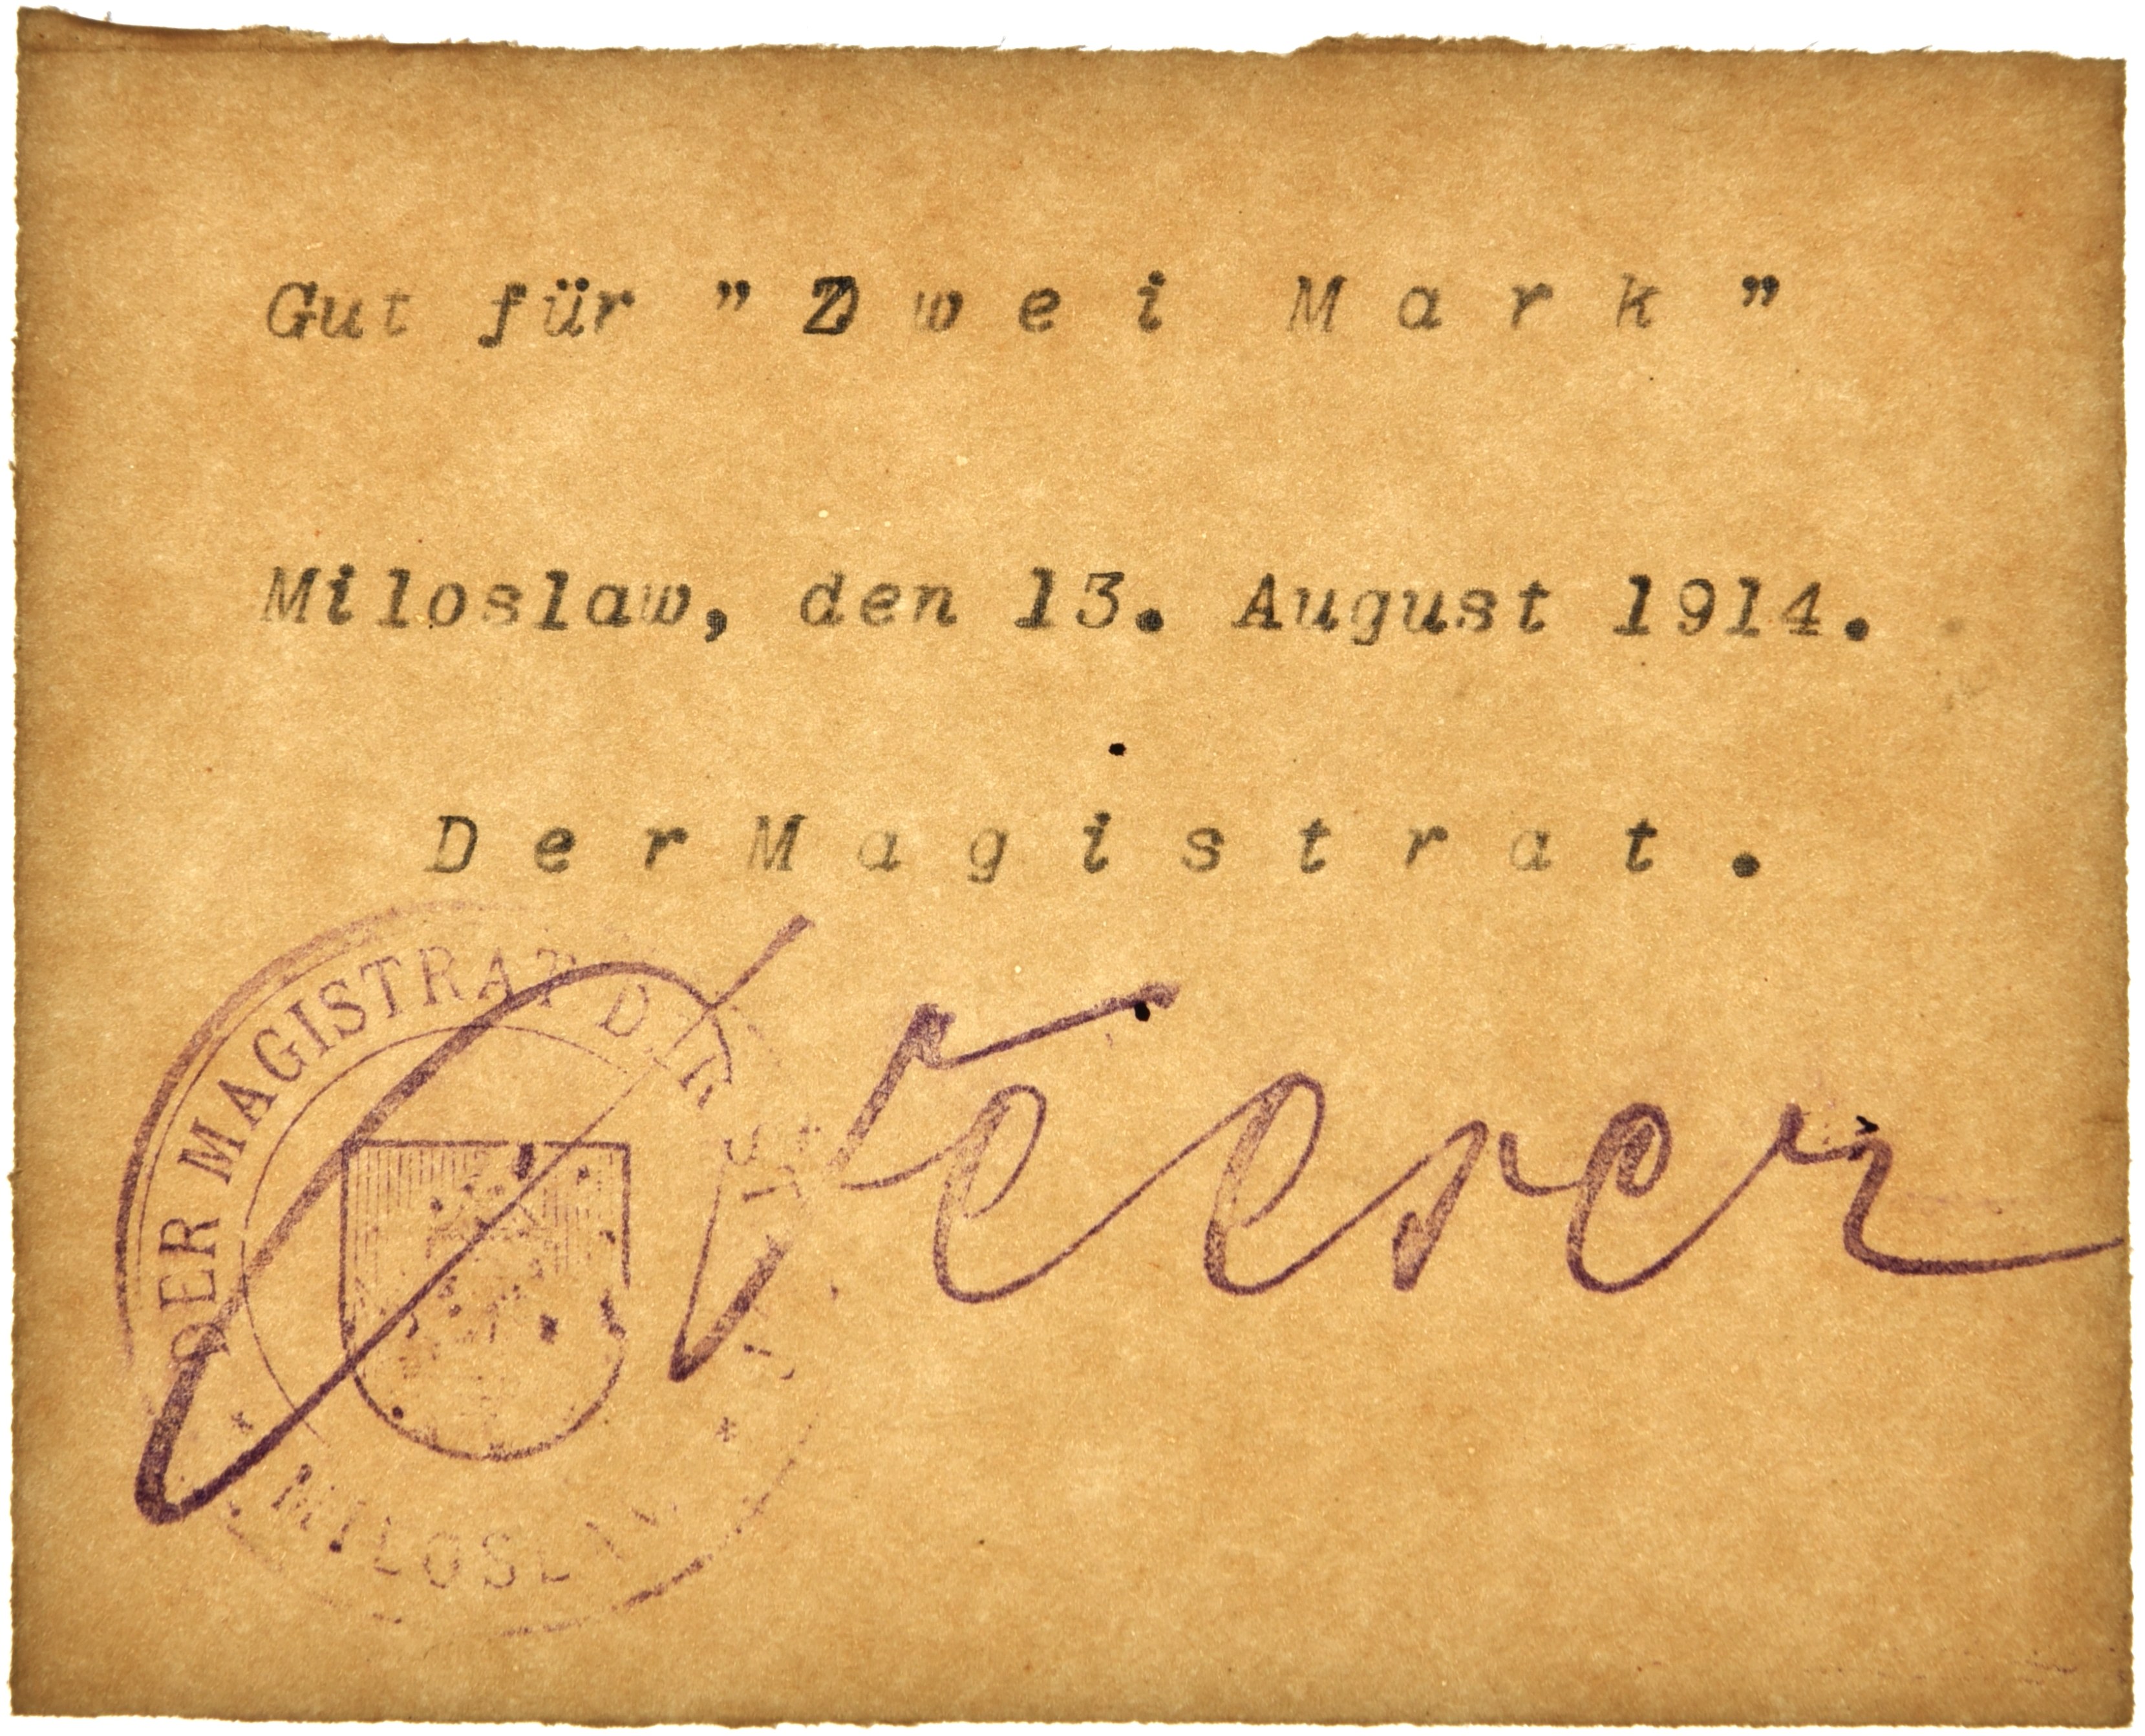 Gut für "Zwei Mark"
Miloslaw, den 13. August 1914.
Der Magistrat.
DER MAGISTRAT DER
MILOSLAW